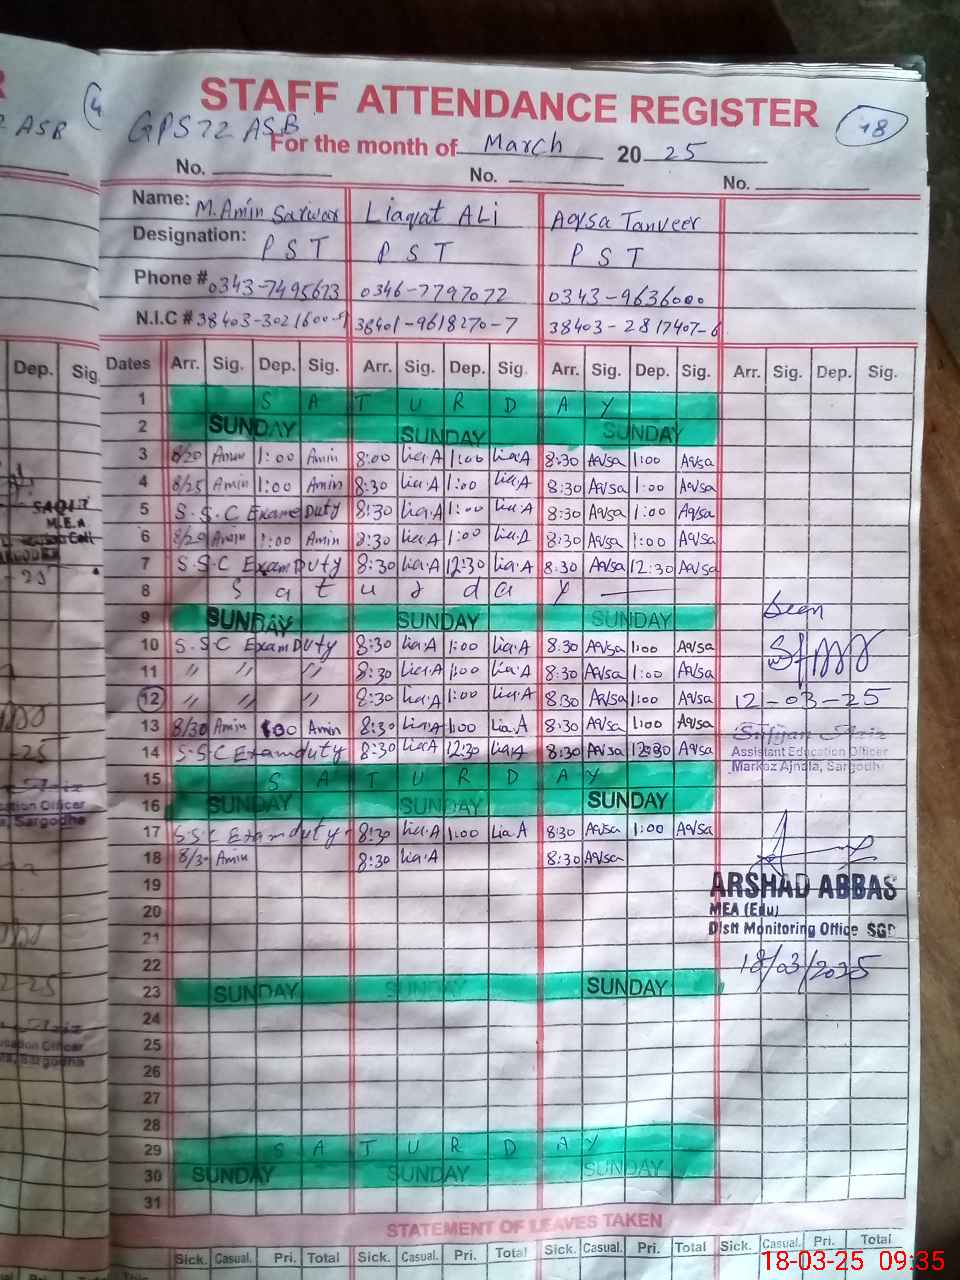 STAFF ATTENDANCE REGISTER
GPS 72 ASB
18
For the month of March 2025
No. No. No.
Name: M. Amin Sarwar Liaqat ALi Aqsa Tanveer
Designation: P S T P S T P S T
Phone # 0343-7495673 0346-7797072 0343-9636000
N.I.C # 38403-3021600-9 38401-9618270-7 38403-2817407-6
Dates Arr. Sig. Dep. Sig. Arr. Sig. Dep. Sig. Arr. Sig. Dep. Sig. Arr. Sig. Dep. Sig.
1 S A T U R D A Y
2 SUNDAY SUNDAY SUNDAY
3 8/20 Amin 1:00 Amin 8:00 Lia.A 1:00 Lia.A 8:30 Aqsa 1:00 Aqsa
4 8/25 Amin 1:00 Amin 8:30 Lia.A 1:00 Lia.A 8:30 Aqsa 1:00 Aqsa
5 S.S.C Exame Duty 8:30 Lia.A 1:00 Lia.A 8:30 Aqsa 1:00 Aqsa
6 8/20 Amin 1:00 Amin 8:30 Lia.A 1:00 Lia.A 8:30 Aqsa 1:00 Aqsa
7 S.S.C Exam Duty 8:30 Lia.A 12:30 Lia.A 8:30 Aqsa 12:30 Aqsa
8 S a t u r d a y
9 SUNDAY SUNDAY SUNDAY
10 S.S.C Exam Duty 8:30 Lia.A 1:00 Lia.A 8:30 Aqsa 1:00 Aqsa
11 " " " 8:30 Lia.A 1:00 Lia.A 8:30 Aqsa 1:00 Aqsa
12 " " " 8:30 Lia.A 1:00 Lia.A 8:30 Aqsa 1:00 Aqsa
13 8/30 Amin 1:00 Amin 8:30 Lia.A 1:00 Lia.A 8:30 Aqsa 1:00 Aqsa
14 S.S C Exam duty 8:30 Lia.A 12:30 Lia.A 8:30 Aqsa 12:30 Aqsa
15 S A T U R D A Y
16 SUNDAY SUNDAY SUNDAY
17 S.S.C Exam duty 8:30 Lia.A 1:00 Lia.A 8:30 Aqsa 1:00 Aqsa
18 8/30 Amin 8:30 Lia.A 8:30 Aqsa
19
20
21
22
23 SUNDAY SUNDAY SUNDAY
24
25
26
27
28
29 S A T U R D A Y
30 SUNDAY SUNDAY SUNDAY
31
Seen
12-03-25
Sufyan Aziz
Assistant Education Officer
Markaz Ajnala, Sargodha
ARSHAD ABBAS
MEA (Edu)
Distt Monitoring Office SGD
18/03/2025
STATEMENT OF LEAVES TAKEN
Sick. Casual. Pri. Total Sick. Casual. Pri. Total Sick. Casual. Pri. Total Sick. Casual. Pri. Total
R
ASB
4
Dep. Sig.
M.E.A
18-03-25 09:35